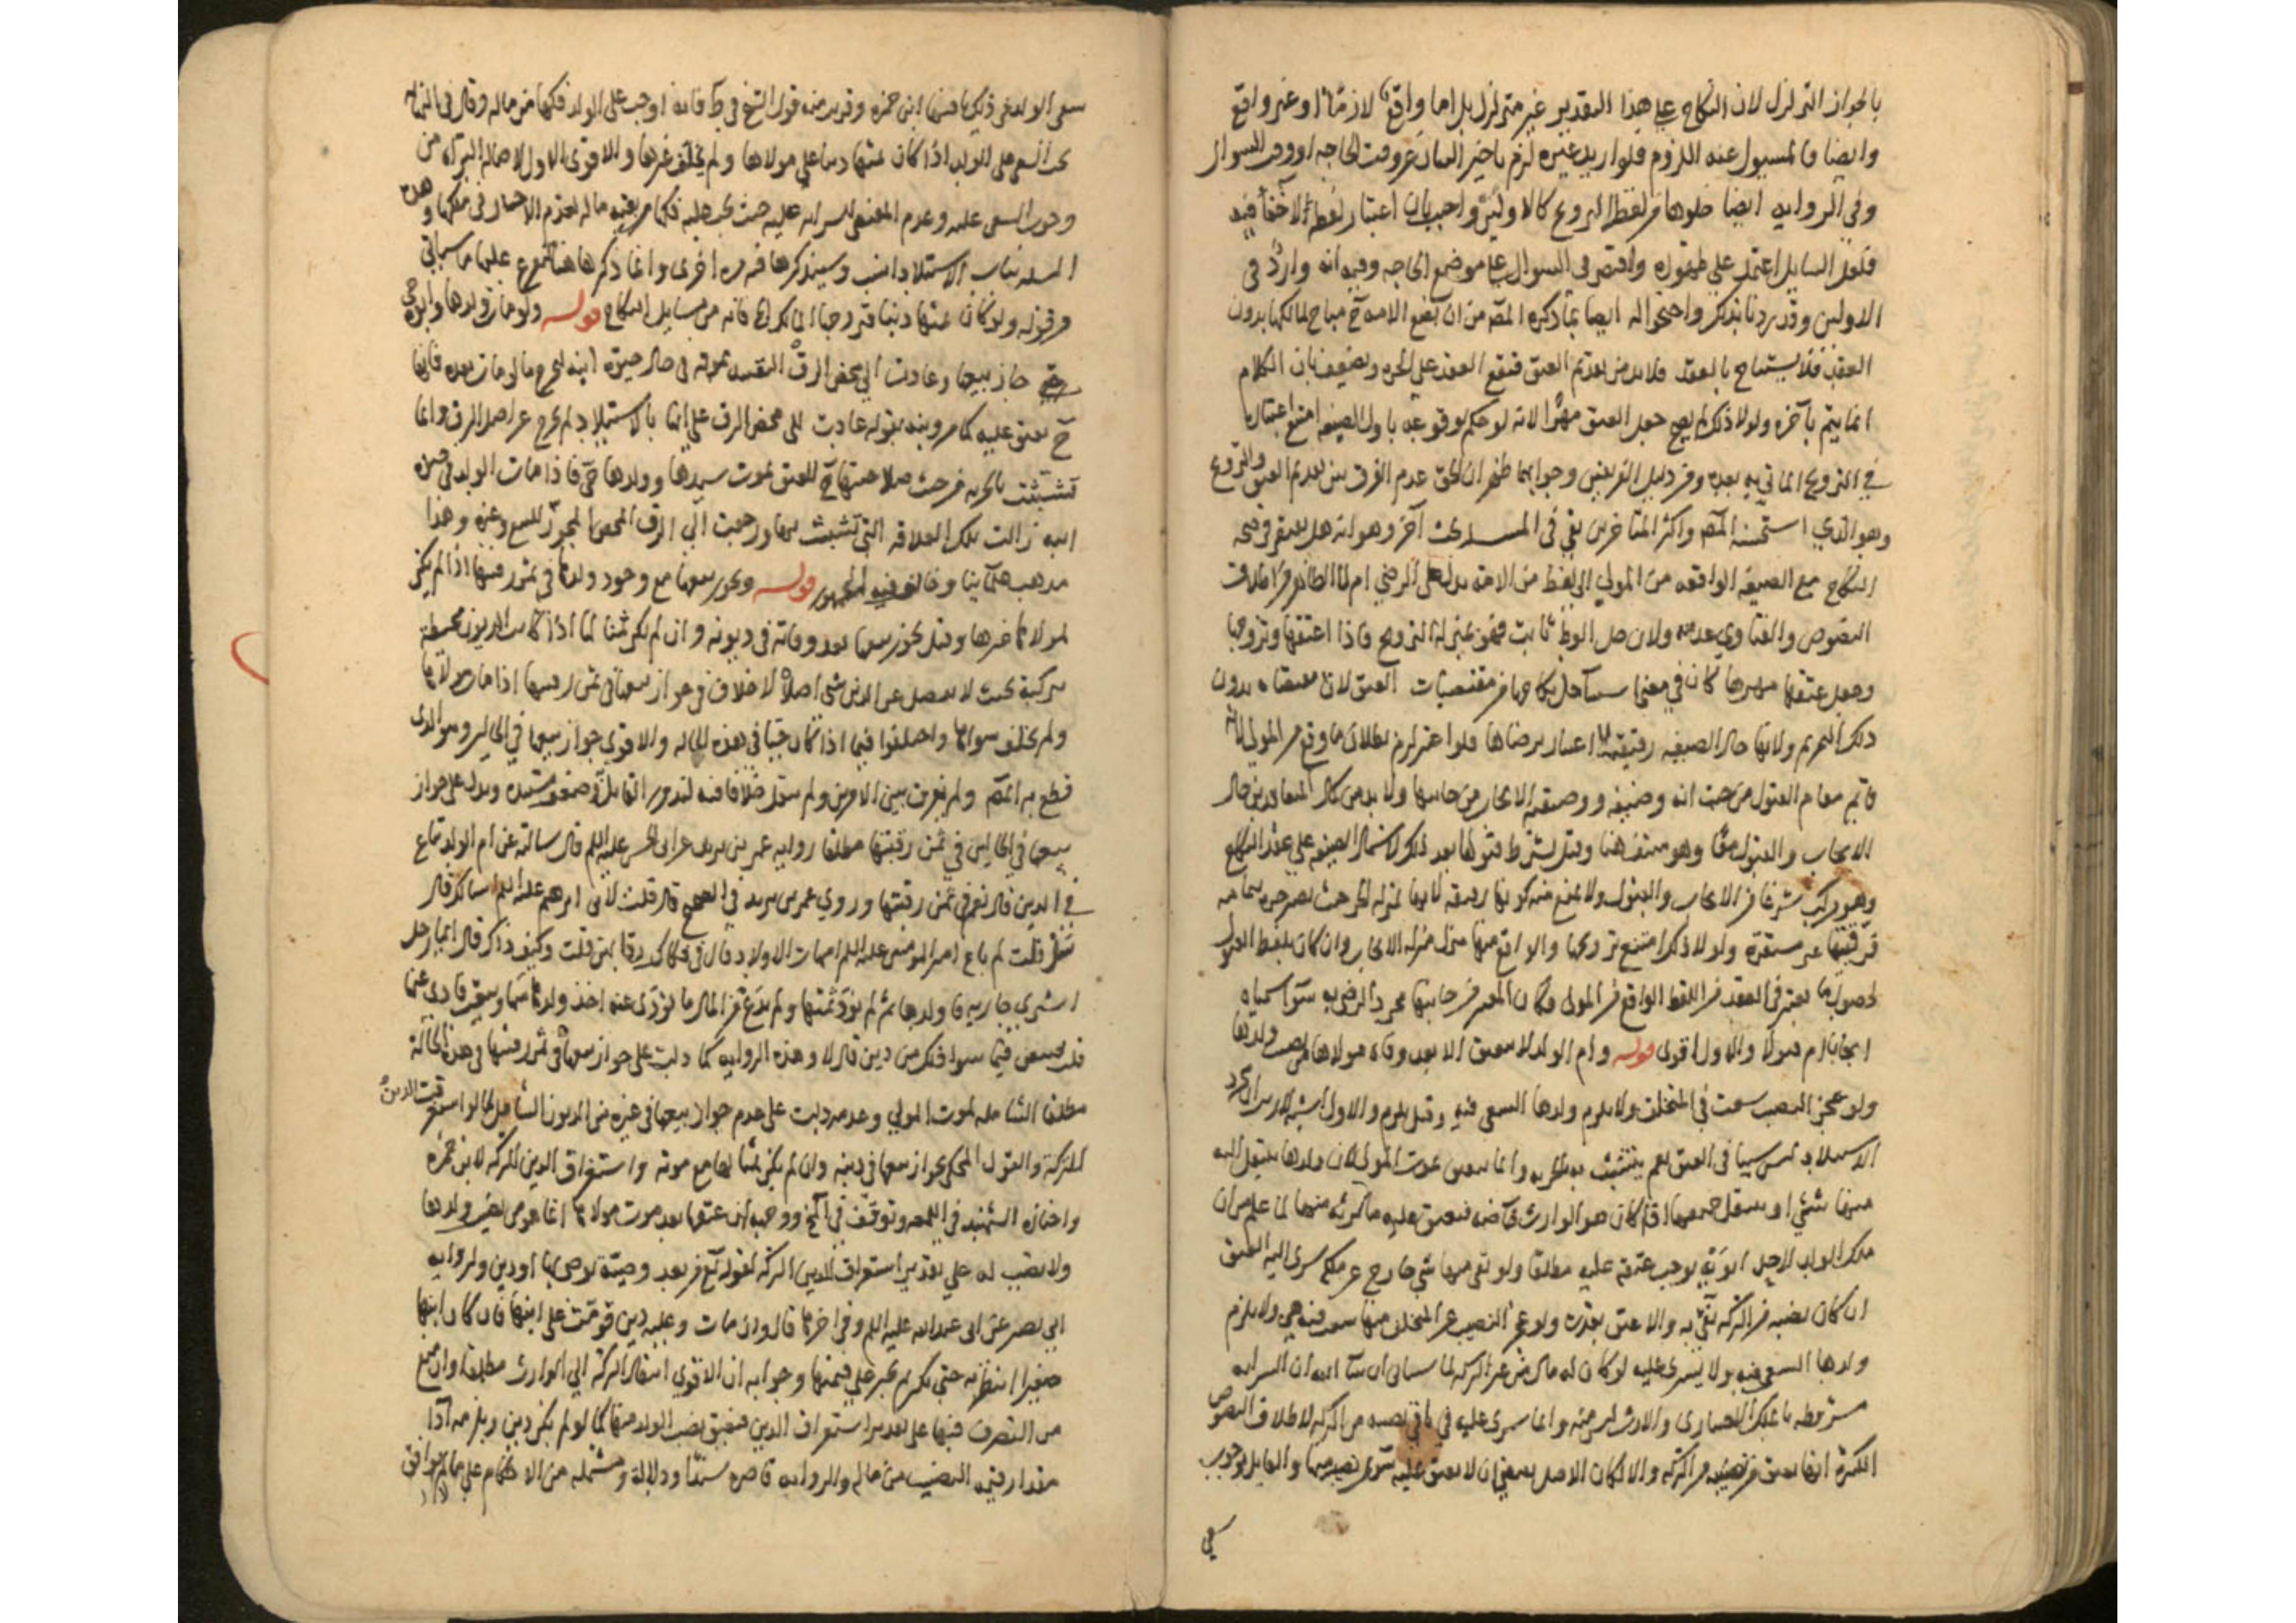 بالجواز التزلزل لان النكاح على هذا التقدير غير متزلزل بل اما واقع لازما او غير واقع
وايضا فالمسؤل عنه اللزوم فلو اريد غيره لزم تاخير البيان عن وقت الحاجه او وقت السوال
وفي الروايه ايضا خلوها من لفظ التزويج كالاولين واجيب بان اعتبار لفظه لا خفأ فيه
فلعل السايل اعتمد على ظهوره واقتصر في السوال على موضع الحاجه وفيه انه وارد في
الاولين وقد ردنا بذلك واحتجوا له ايضا بما ذكره المصّ من ان بضع الامه مباح لمالكها بدون
العقد فلا يستباح بالعقد فلا بد من تقديم العتق فيقع العقد على الحره ويضعف بان الكلام
انما يتم بآخره ولولا ذلك لم يصح جعل العتق مهرا لانه لو حكم بوقوعه باول الصيغه امتنع اعتباره
في التزويج الماتي به بعده ومن دليل الفريقين وجوابهما ظهر ان الحق عدم الفرق بين تقديم العتق والتزويج
وهو الذي استحسنه المصّ واكثر المتاخرين بقي في المسله بحث آخر وهو انه هل يعتبر في صحه
النكاح مع الصيغه الواقعه من المولى الى لفظ من الامه يدل على الرضى ام لا الظاهر من اطلاق
النصوص والفتاوي عدمه ولان حل الوطئ ثابت فهو بمنزله التزويج فاذا اعتقها وتزوجها
وجعل عتقها مهرها كان في معنى
ذلك التحريم ولانها حال الصيغه رقيقه لا اعتبار برضاها فلو اعتبر لزم بطلان ما وقع من المولى لانه
قايم مقام القبول من حيث انه وضيفه ووضيفه الايجاب من جانبها ولا بد من كمال المتعاقدين حال
الايجاب والقبول معا وهو منتف هنا وقيل يشترط قبولها بعد ذلك لاشتمال الصيغه على عقد النكاح
وهو مركب شرعا من الايجاب والقبول ولا يمنع منه كونها رقيقه لانها بمنزله الحره حيث
فرقيتها غير مستقره ولولا ذلك امتنع تزويجها والواقع منها منزل منزله الايجاب وان كان بلفظ القبول
لحصول ما يعتبر في العقد من اللفظ الواقع من المولى فكان المعتبر من جانبها مجرد الرضى به سوا سميناه
ايجابا ام قبولا والاول اقوى قوله وام الولد لا تنعتق الا بعد وفاه مولاها من نصيب ولدها
ولو عجز النصيب سعت في المتخلف ولا يلزم ولدها السعى فيه وقيل يلزم والاول اشبه
الاستيلاد ليس سببا في العتق نعم يتشبث به بالحريه وانما تعتق بموت المولى لان ولدها ينتقل اليه
منها شئ او ينتقل جميعها اذا كان هو الوارث خاصه فتعتق عليه ما يرثه منها لما علم من ان
ملك الولد لاحد ابويه يوجب عتقه عليه مطلقا ولو بقى منها شئ خارج عن ملكه سرى اليه العتق
ان كان نصيبه من التركه يفي به والا عتق بقدره ولو عجز النصيب عن المتخلف منها سعت فيه هي ولا يلزم
ولدها السعى فيه ولا يسرى عليه لو كان له مال من غير التركه لما سياتى ان شا الله ان السرايه
مشروطه بالملك الاختياري والارث ليس منه وانما سرى عليه في باقي نصيبه من التركه لاطلاق النصوص
الكثيره انها تعتق من نصيبه من التركه والا لكان الاصل يقتضى ان لا يعتق عليه سوى نصيبه منها والقايل بوجوب
سعى
سعى الولد في ذلك هنا ابن حمزه وقريب منه قول الشيخ في ط فانه اوجب على الولد فكها من ماله وقال في النهايه
يجب السعى على الولد اذا كان ثمنها دينا على مولاها ولم يخلف غيرها والاقوى الاول لاصاله البراه من
وجوب السعى عليه وعدم المقتضى للسرايه عليه حيث يجب عليه فكها من بقيه ماله لعدم الاختيار في ملكها وهذه
المسله بباب الاستيلاد انسب وسيذكرها فيه مره اخرى وانما ذكرها هنا لتفرع عليها ما سياتي
من قوله ولو كان ثمنها دينا فتزوجها المالك الخ فانه من مسايل النكاح قوله ولو مات ولدها وابوه حى
جاز بيعها وعادت الى محض الرق التقييد بموته في حال حيوة ابيه ليخرج ما لو مات بعده فانها
ح تعتق عليه كما مر وبنه بقوله عادت الى محض الرق على انها بالاستيلاد لم تخرج عن اصل الرق وانما
تشبثت بالحريه من حيث صلاحيتها ح للعتق بموت سيدها وولدها حى فاذا مات الولد في حيوه
ابيه زالت تلك العلاقه التى تشبثت بها ورجعت الى الرق المحض المجوز للبيع وغيره وهذا
مذهب علمائنا وخالف فيه الجمهور قوله ويجوز بيعها مع وجود ولدها في ثمن رقبتها اذا لم يكن
لمولاها غيرها وقيل يجوز بيعها بعد وفاته في ديونه وان لم يكن ثمنا لها اذا كانت الديون محيطه
بتركته بحيث لا يفضل عن الدين شئ اصلا لا خلاف في جواز بيعها في ثمن رقبتها اذا مات مولاها
ولم يخلف سواها واختلفوا فيما اذا كان حيا في هذه الحاله والاقوى جواز بيعها في الحالين وهو الذى
قطع به المصّ ولم يفرق بين الامرين ولم ينقل خلافا فيه لندور القايل وضعف مستنده ويدل على جواز
بيعها في الحالين في ثمن رقبتها مطلقا روايه عمر بن يزيد عن ابى الحسن عليه السلم قال سالته عن ام الولد تباع
في الدين قال نعم في ثمن رقبتها وروي عمر بن يزيد في الصحيح قال قلت لابى ابرهيم عليه السلم اسالك قال
سل قلت لم باع امير المومنين عليه السلم امهات الاولاد قال في فكاك رقابهن قلت وكيف ذلك قال ايما رجل
اشترى جاريه فاولدها ثم لم يؤد ثمنها ولم يدع من المال ما يؤدى عنه اخذ ولدها منها وبيعت فادى عنها
قلت فتبعن فيما سوا ذلك من دين قال لا وهذه الروايه كما دلت على جواز بيعها في ثمن رقبتها في هذه الحالة
مطلقا الشامله لموت المولى وعدمه دلت على عدم جواز بيعها في غيره من الديون الشامل لما لو استغرقت الدين
التركة والقول المحكى بجواز بيعها في دينه وان لم يكن ثمنا لها مع موته واستغراق الدين للتركه لابن حمزه
واختاره الشهيد في اللمعه وتوقف في المخ ووجهه ان عتقها بعد موت مولاها انما هو من نصيب ولدها
ولا نصيب له على تقدير استغراق الدين التركه لقوله تع من بعد وصيّة يوصى بها او دين ولروايه
ابى بصير عن ابى عبد الله عليه السلم وفى اخرها قال وان مات وعليه دين قومت على ابنها فان كان ابنها
صغيرا انتظر به حتى يكبر ثم يجبر على قيمتها وجوابه ان الاقوى انتقال التركه الى الوارث مطلقا وان منع
من التصرف فيها على تقدير استغراق الدين فيعتق نصيب الولد منها كما لو لم يكن دين ويلزمه اداء
مقدار قيمه النصيب من ماله والروايه قاصره سندا ودلالة ومشتمله من الاحكام على ما لا يوافق